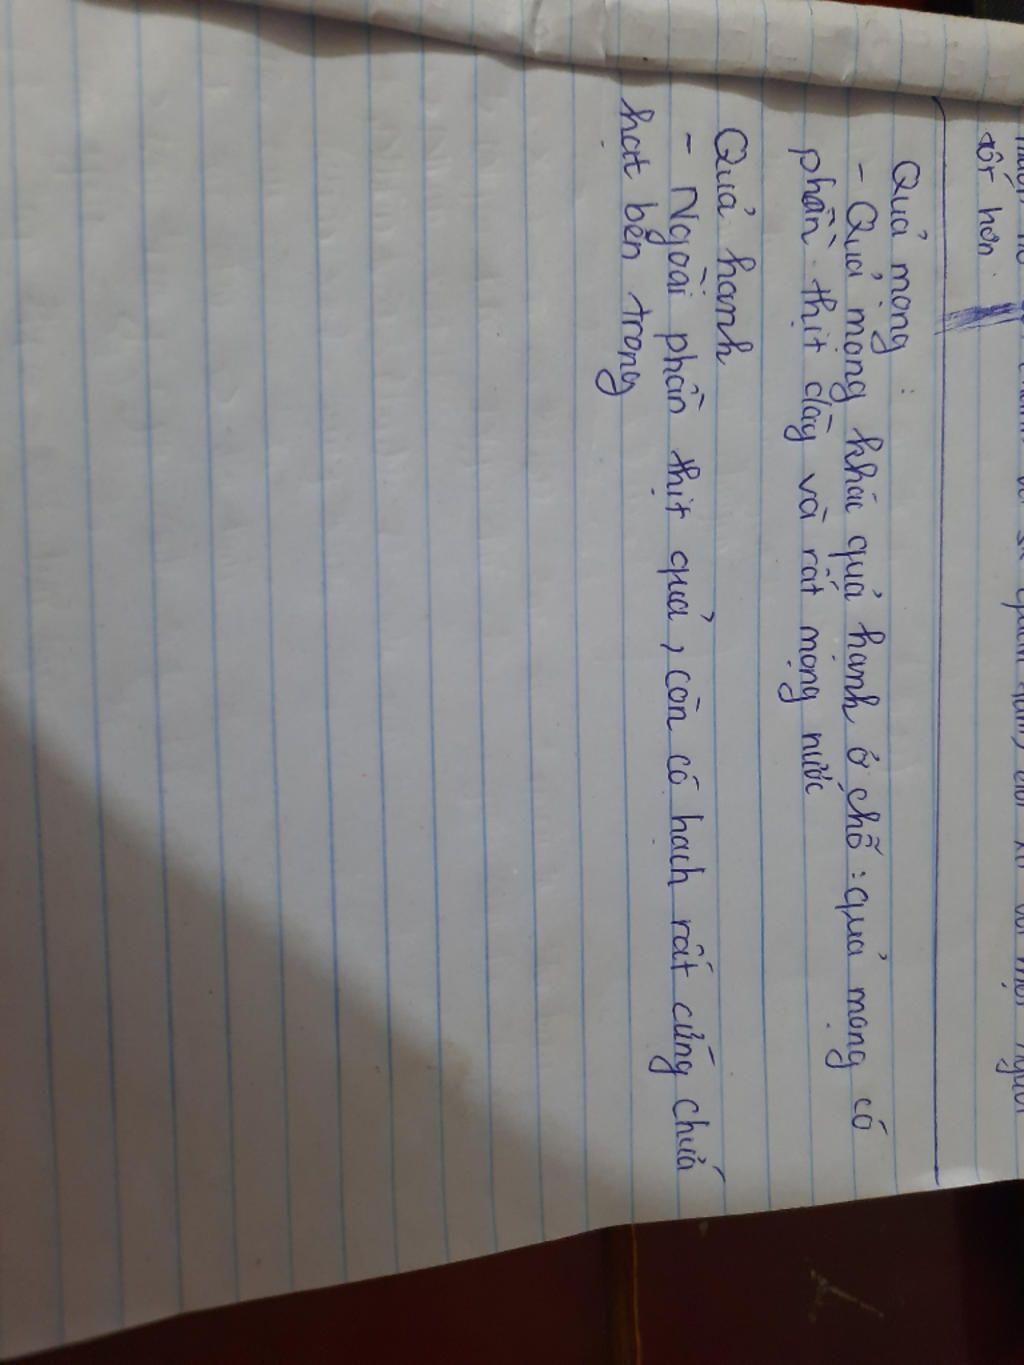 tốt hơn.
Quả mọng :
- Quả mọng khác quả hạnh ở chỗ : quả mọng có
phần thịt dày và rất mọng nước
Quả hạnh
- Ngoài phần thịt quả, còn có hạch rất cứng chứa
hạt bên trong